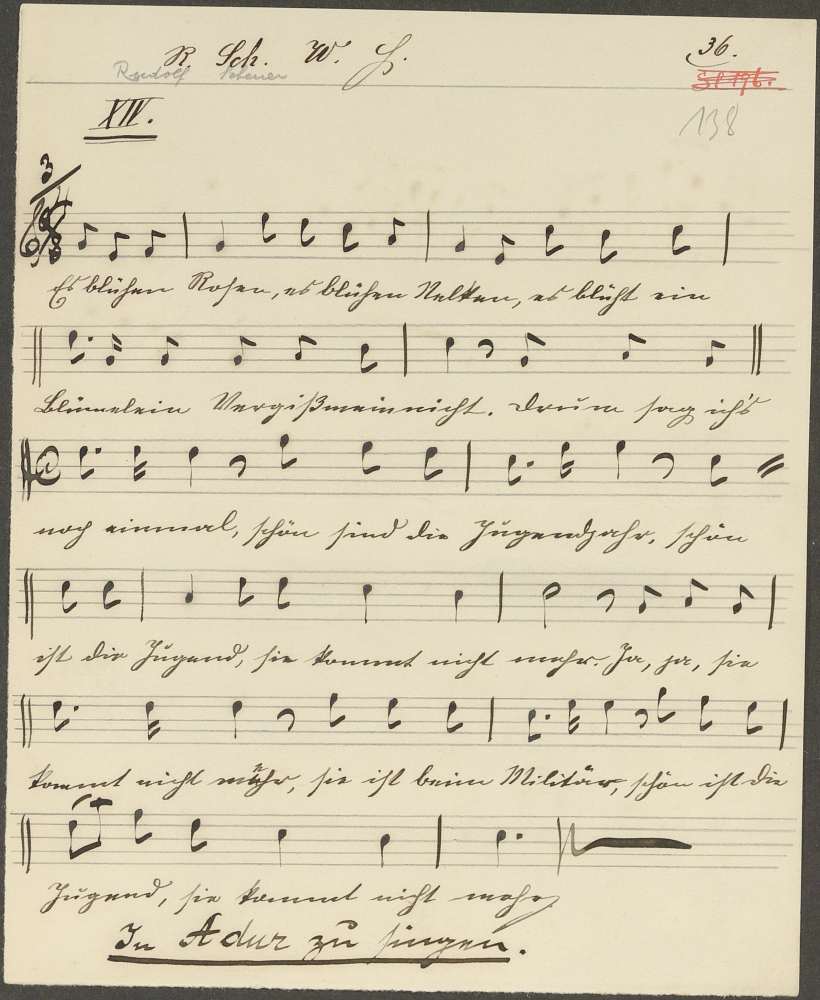 R. Sch. W. H.
36.
Rudolf
138
XIV.
3/4
Es blühen Rosen, es blühen Nelken, es blüht ein
Blümelein Vergißmeinnicht. Drum sag ich's
noch einmal, schön sind die Jugendjahr, schön
ist die Jugend, sie kommt nicht mehr. Ja, ja, sie
kommt nicht mehr, sie ist beim Militär, schön ist die
Jugend, sie kommt nicht mehr
In A dur zu singen.